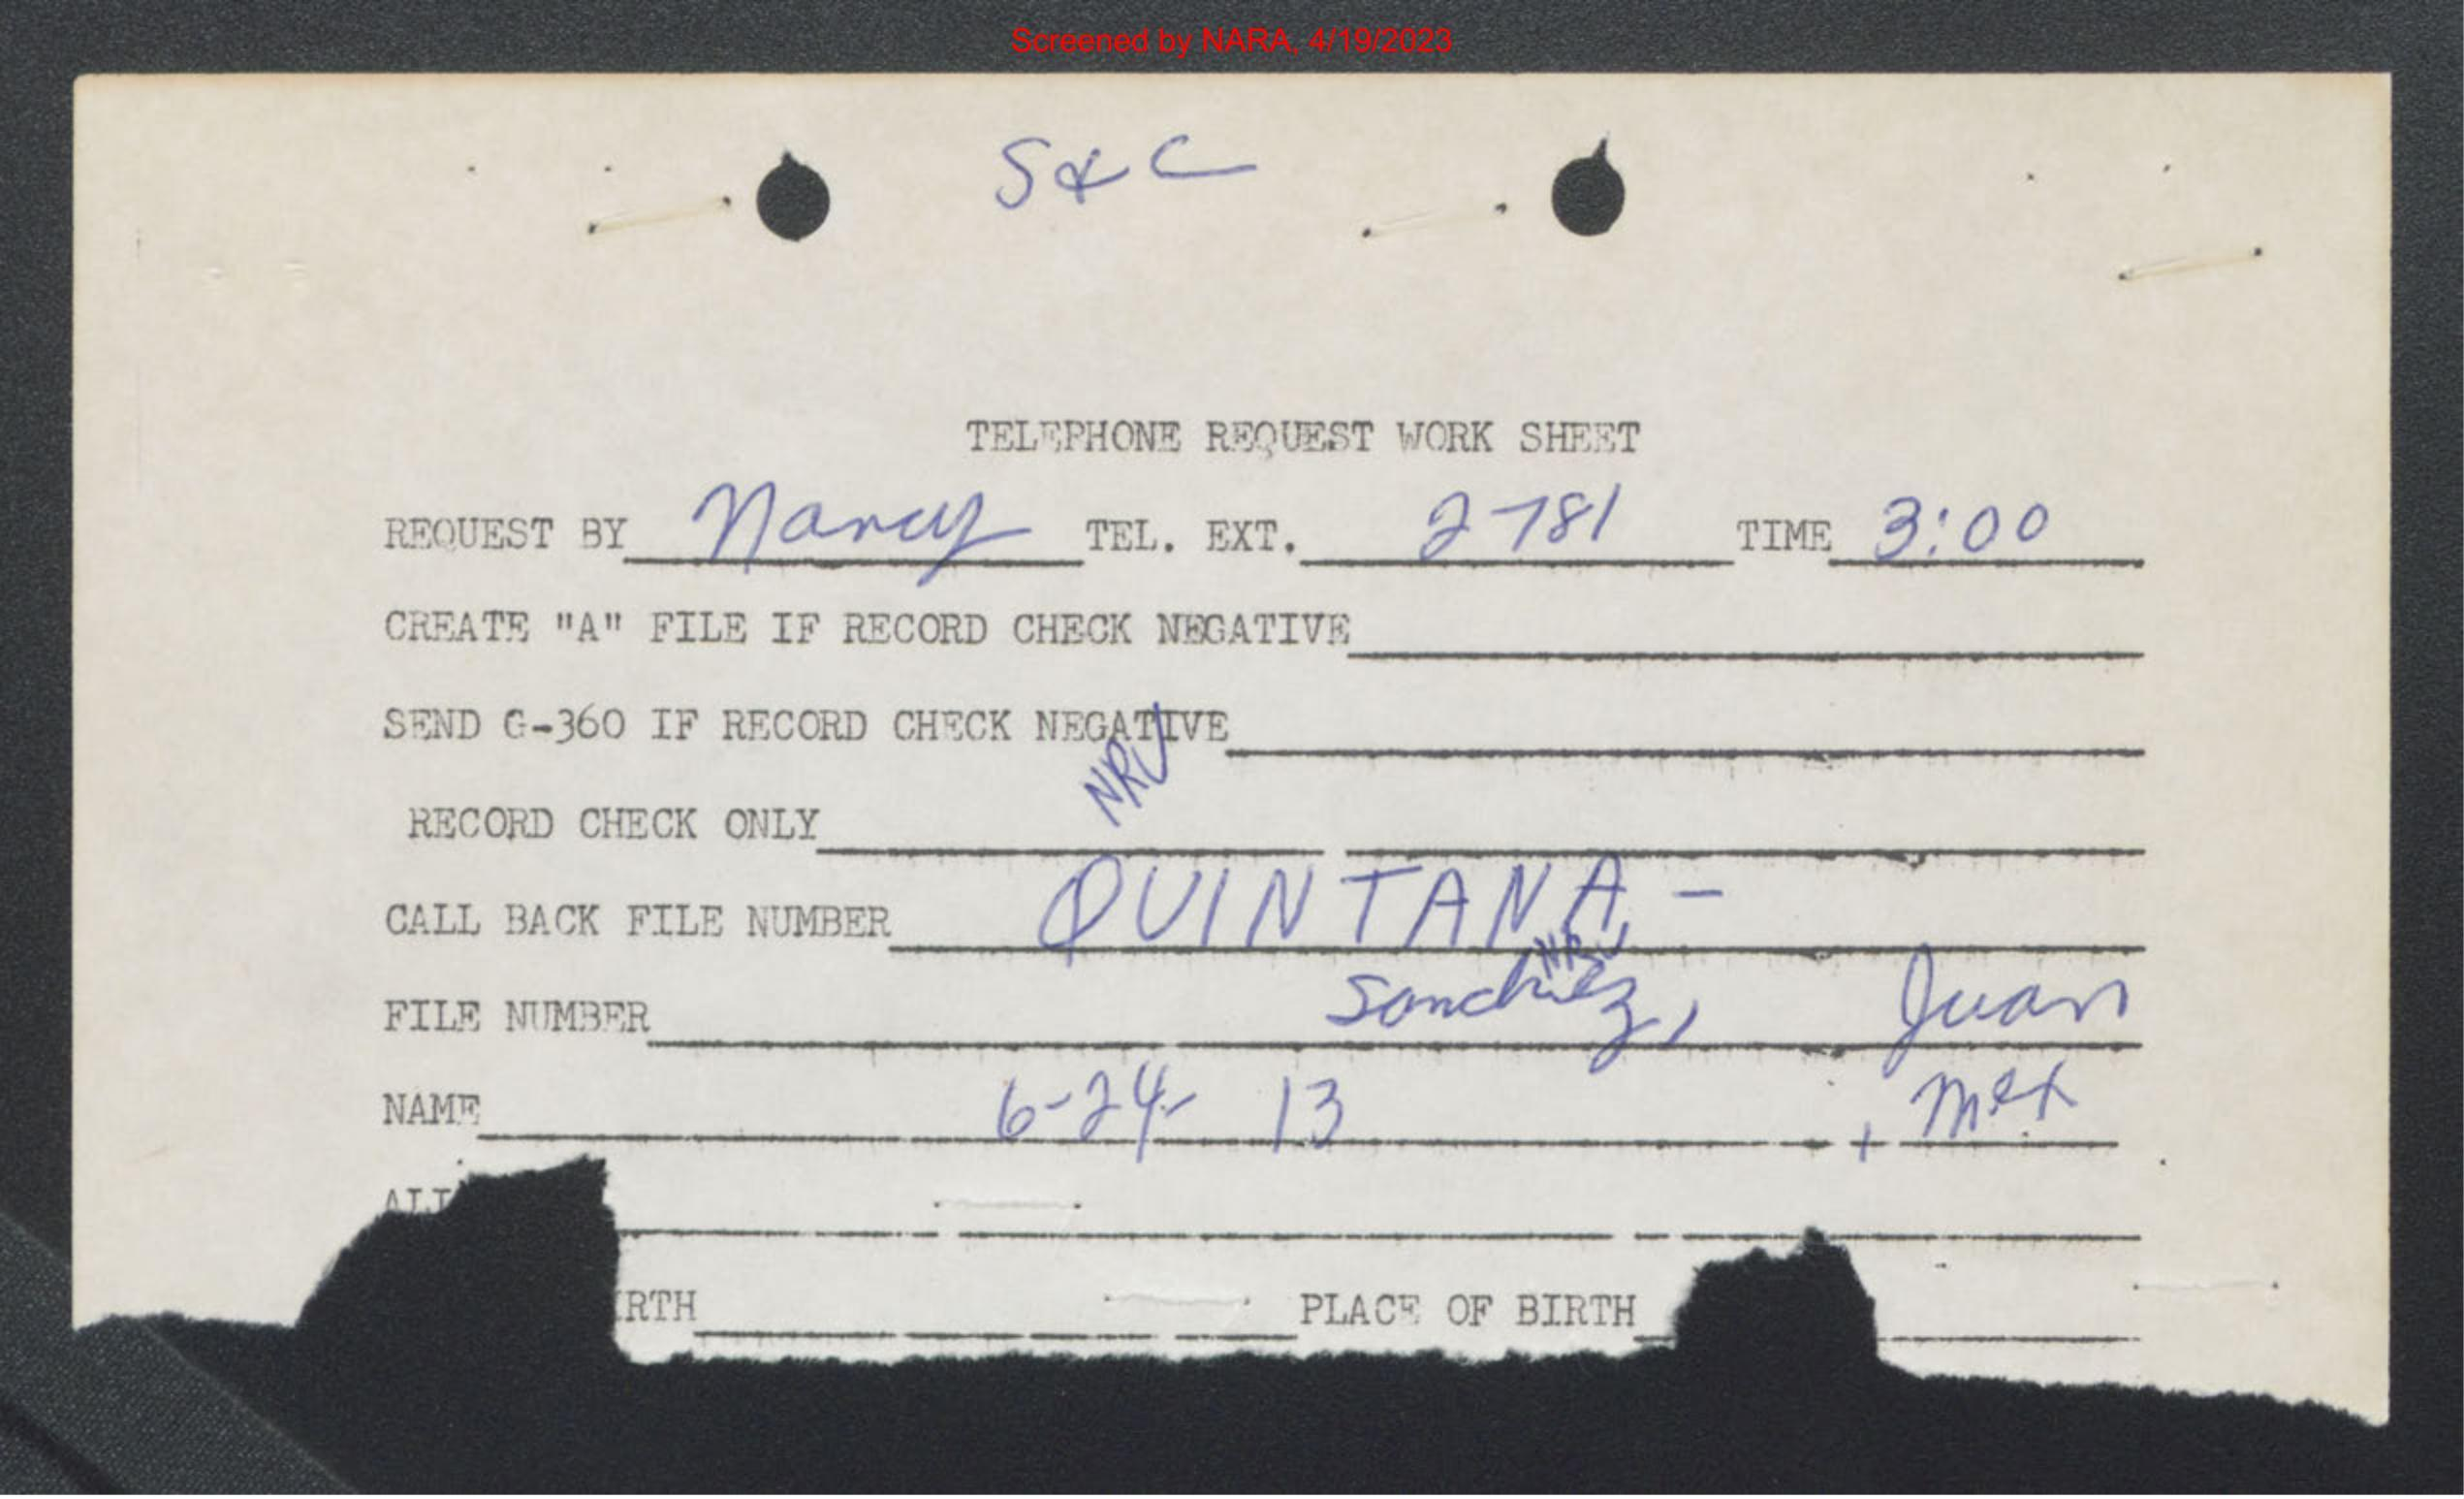 Screened by NARA, 4/19/2023
S & C
TELEPHONE REQUEST WORK SHEET
REQUEST BY Nancy TEL. EXT. 2781 TIME 3:00
CREATE "A" FILE IF RECORD CHECK NEGATIVE
SEND G-360 IF RECORD CHECK NEGATIVE
RECORD CHECK ONLY
CALL BACK FILE NUMBER QUINTANA-
FILE NUMBER Sanchez, Juan
NAME 6-24-13, Mex
ALI
IRTH PLACE OF BIRTH